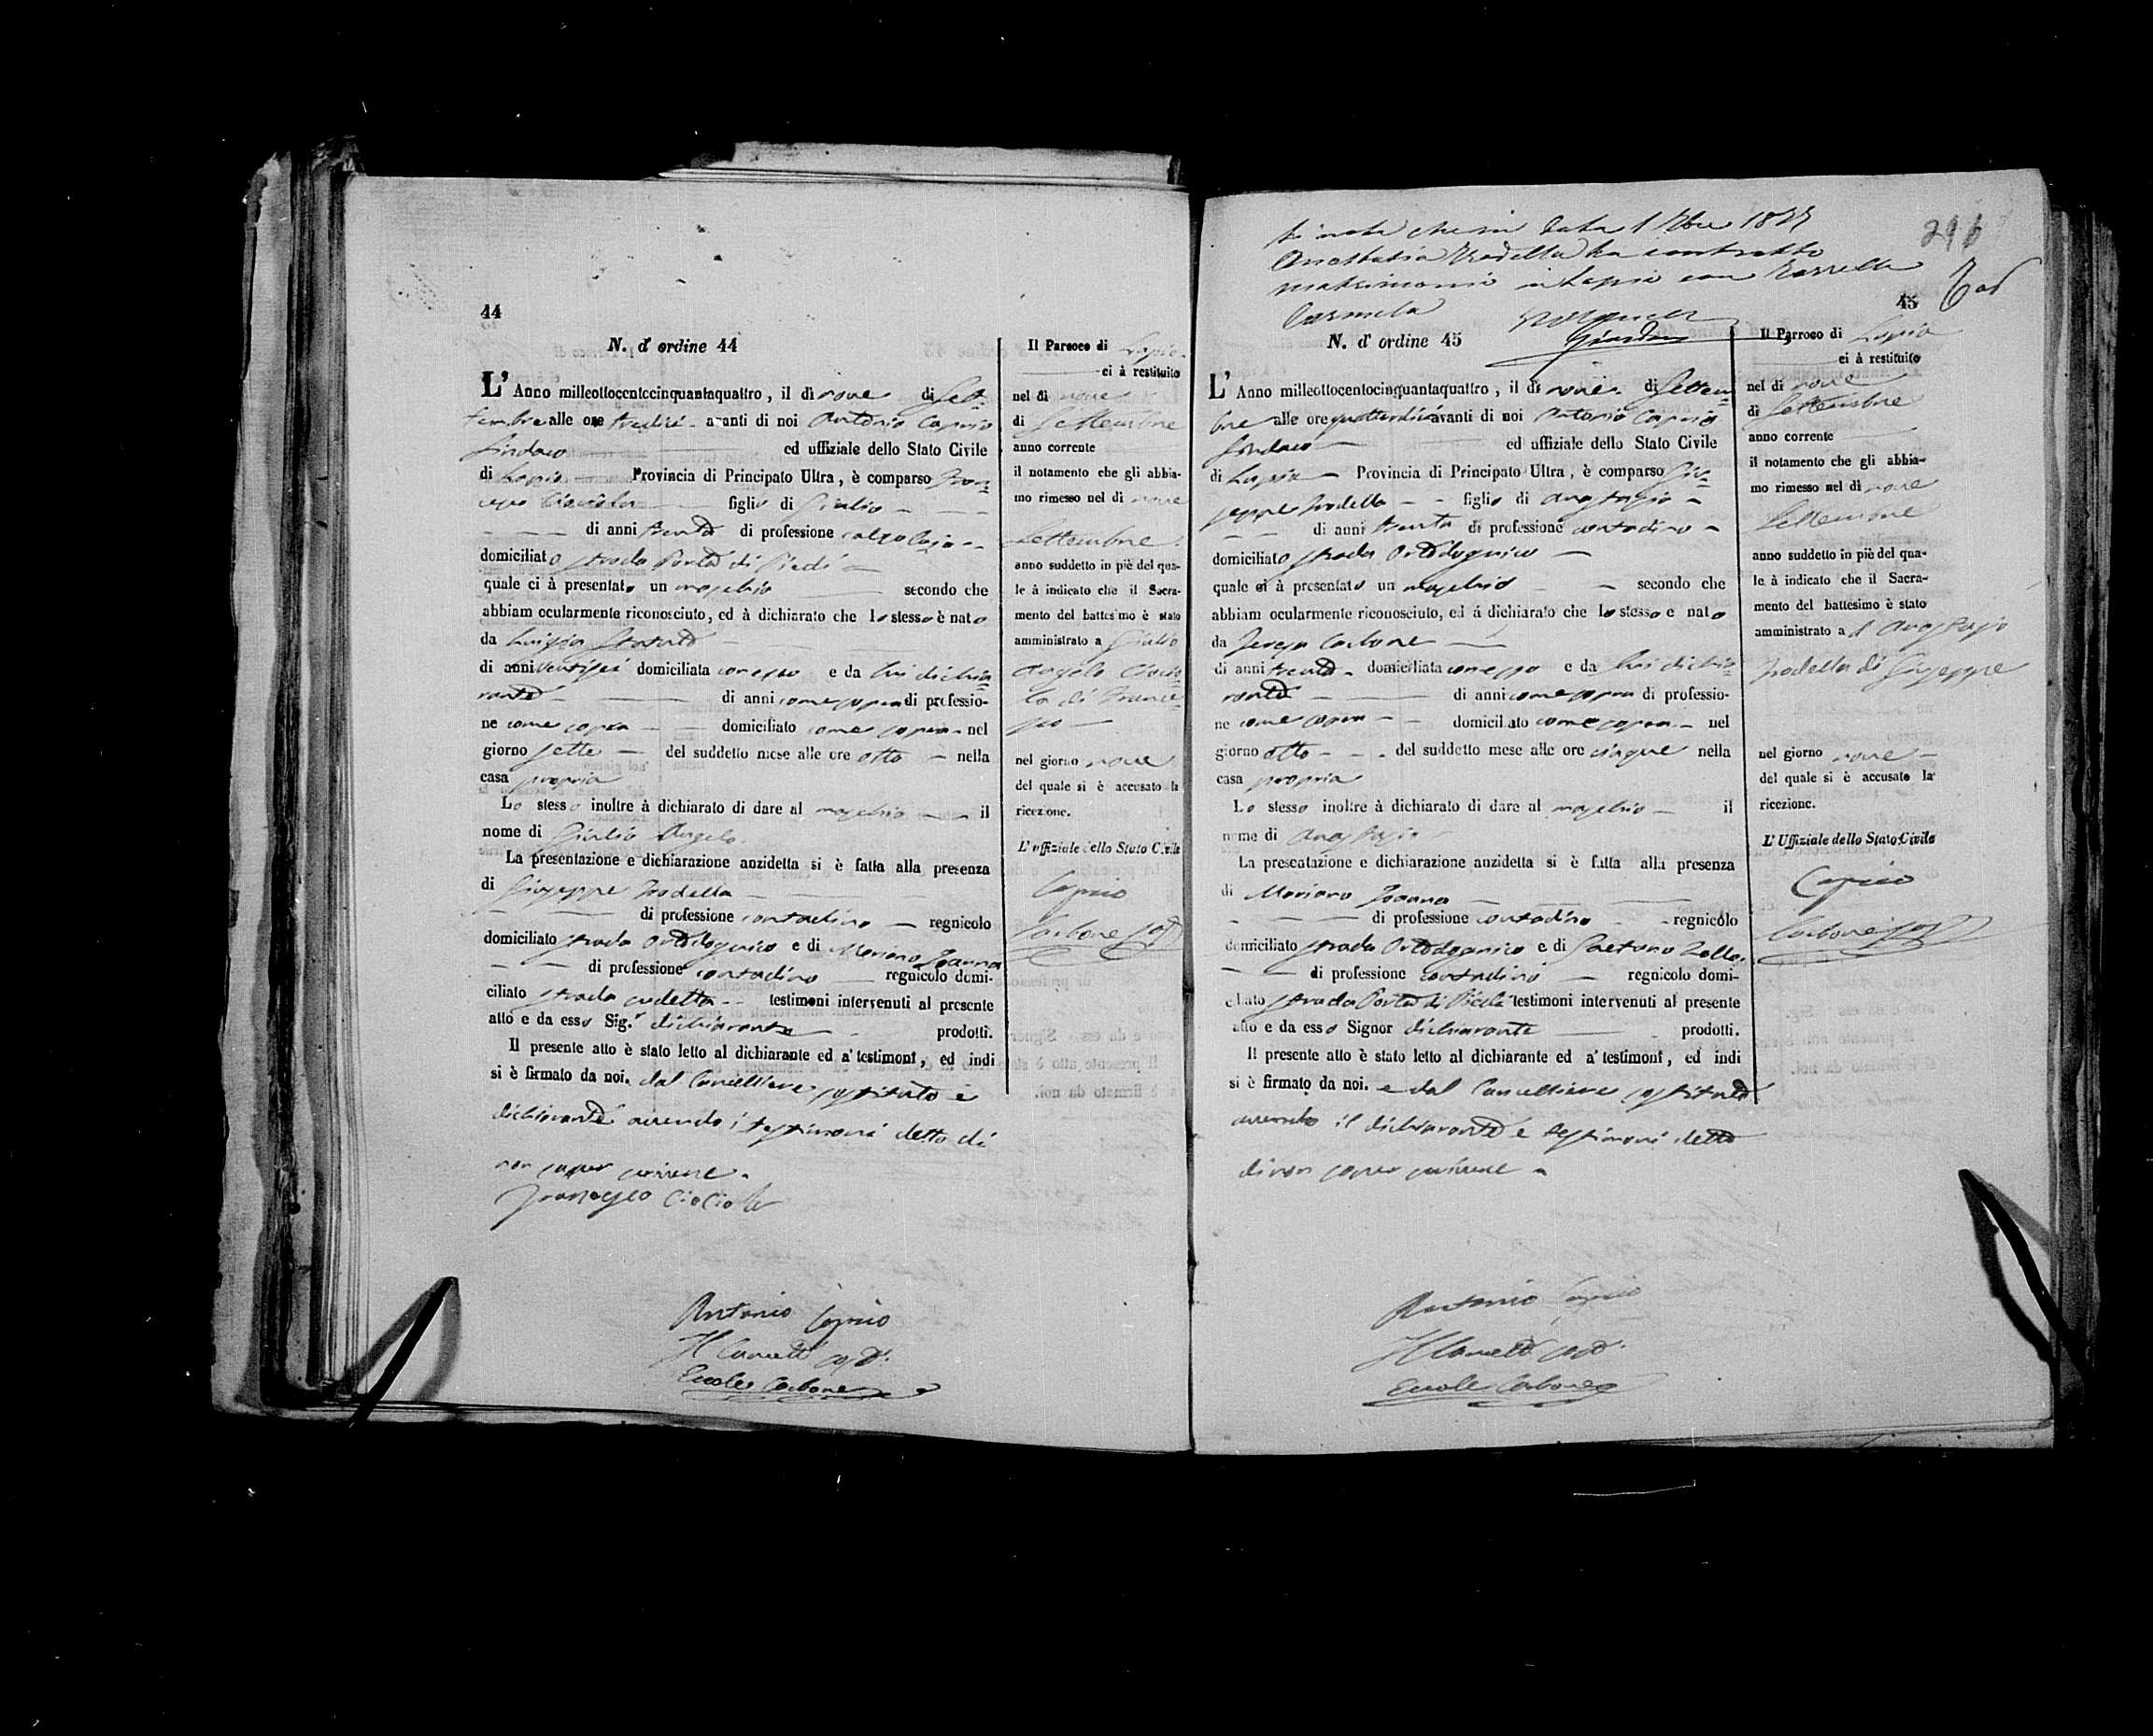 44
N. d' ordine 44
L' Anno milleottocentocinquantaquattro, il dì nove di Set-
tembre alle ore tredici avanti di noi Antonio Caprio
Sindaco ed uffiziale dello Stato Civile
di Lapio Provincia di Principato Ultra, è comparso Fran-
cesco Ciociola figlio di Giulio
di anni trenta di professione calzolajo
domiciliato strada Porta di Piedi
quale ci à presentato un maschio secondo che
abbiam ocularmente riconosciuto, ed à dichiarato che lo stesso è nato
da Luigia
di anni ventisei domiciliata con esso e da lui dichia-
rante di anni come sopra di professio-
ne come sopra domiciliato come sopra nel
giorno sette del suddetto mese alle ore otto nella
casa propria
Lo stesso inoltre à dichiarato di dare al maschio il
nome di Giulio Angelo
La presentazione e dichiarazione anzidetta si è fatta alla presenza
di Giuseppe Trodella
di professione contadino regnicolo
domiciliato strada e di Mariano Joanna
di professione contadino regnicolo domi-
ciliato strada sudetta testimoni intervenuti al presente
atto e da esso Sig.r dichiarante prodotti.
Il presente atto è stato letto al dichiarante ed a' testimonî, ed indi
si è firmato da noi. dal Cancelliere sostituto e
dichiarante avendo i testimoni detto di
non saper scrivere.
Francesco Ciociola
Antonio Caprio
Il Cancell. sost.
Ercole Carbone
Il Parroco di Lapio
ci à restituito
nel dì nove
di Settembre
anno corrente
il notamento che gli abbia-
mo rimesso nel dì nove
Settembre
anno suddetto in piè del qua-
le à indicato che il Sacra-
mento del battesimo è stato
amministrato a Giulio
Angelo Ciocio-
la di France-
sco
nel giorno nove
del quale si è accusato la
ricezione.
L' uffiziale dello Stato Civile
Caprio
Carbone sost.
216
Si nota che in data 1
Anastasia Trodella ha contratto
matrimonio in Lapio con
Carmela
45
N. d' ordine 45
L' Anno milleottocentocinquantaquattro, il dì nove di Settem-
bre alle ore quattordici avanti di noi Antonio Caprio
Sindaco ed uffiziale dello Stato Civile
di Lapio Provincia di Principato Ultra, è comparso Giu-
seppe Trodella figlio di Anastasio
di anni trenta di professione contadino
domiciliato strada
quale ci à presentato un maschio secondo che
abbiam ocularmente riconosciuto, ed á dichiarato che lo stesso e nato
da Teresa Carbone
di anni trenta domiciliata con esso e da lui dichia-
rante di anni come sopra di professio-
ne come sopra domiciliato come sopra nel
giorno otto del suddetto mese alle ore cinque nella
casa propria
Lo stesso inoltre à dichiarato di dare al maschio il
nome di Anastasio
La presentazione e dichiarazione anzidetta si è fatta alla presenza
di Mariano Joanna
di professione contadino regnicolo
domiciliato strada e di Gaetano
di professione contadino regnicolo domi-
ciliato strada Porta di Piedi testimoni intervenuti al presente
atto e da esso Signor dichiarante prodotti.
Il presente atto è stato letto al dichiarante ed a' testimonî, ed indi
si è firmato da noi. e dal Cancelliere sostituto
avendo il dichiarante e testimoni detto
di non saper scrivere
Antonio Caprio
Il Cancell. sost.
Ercole Carbone
Il Parroco di Lapio
ci à restituito
nel dì nove
di Settembre
anno corrente
il notamento che gli abbia-
mo rimesso nel dì nove
Settembre
anno suddetto in piè del qua-
le à indicato che il Sacra-
mento del battesimo è stato
amministrato a Anastasio
Trodella di Giuseppe
nel giorno nove
del quale si è accusato la
ricezione.
L' Uffiziale dello Stato Civile
Caprio
Carbone sost.